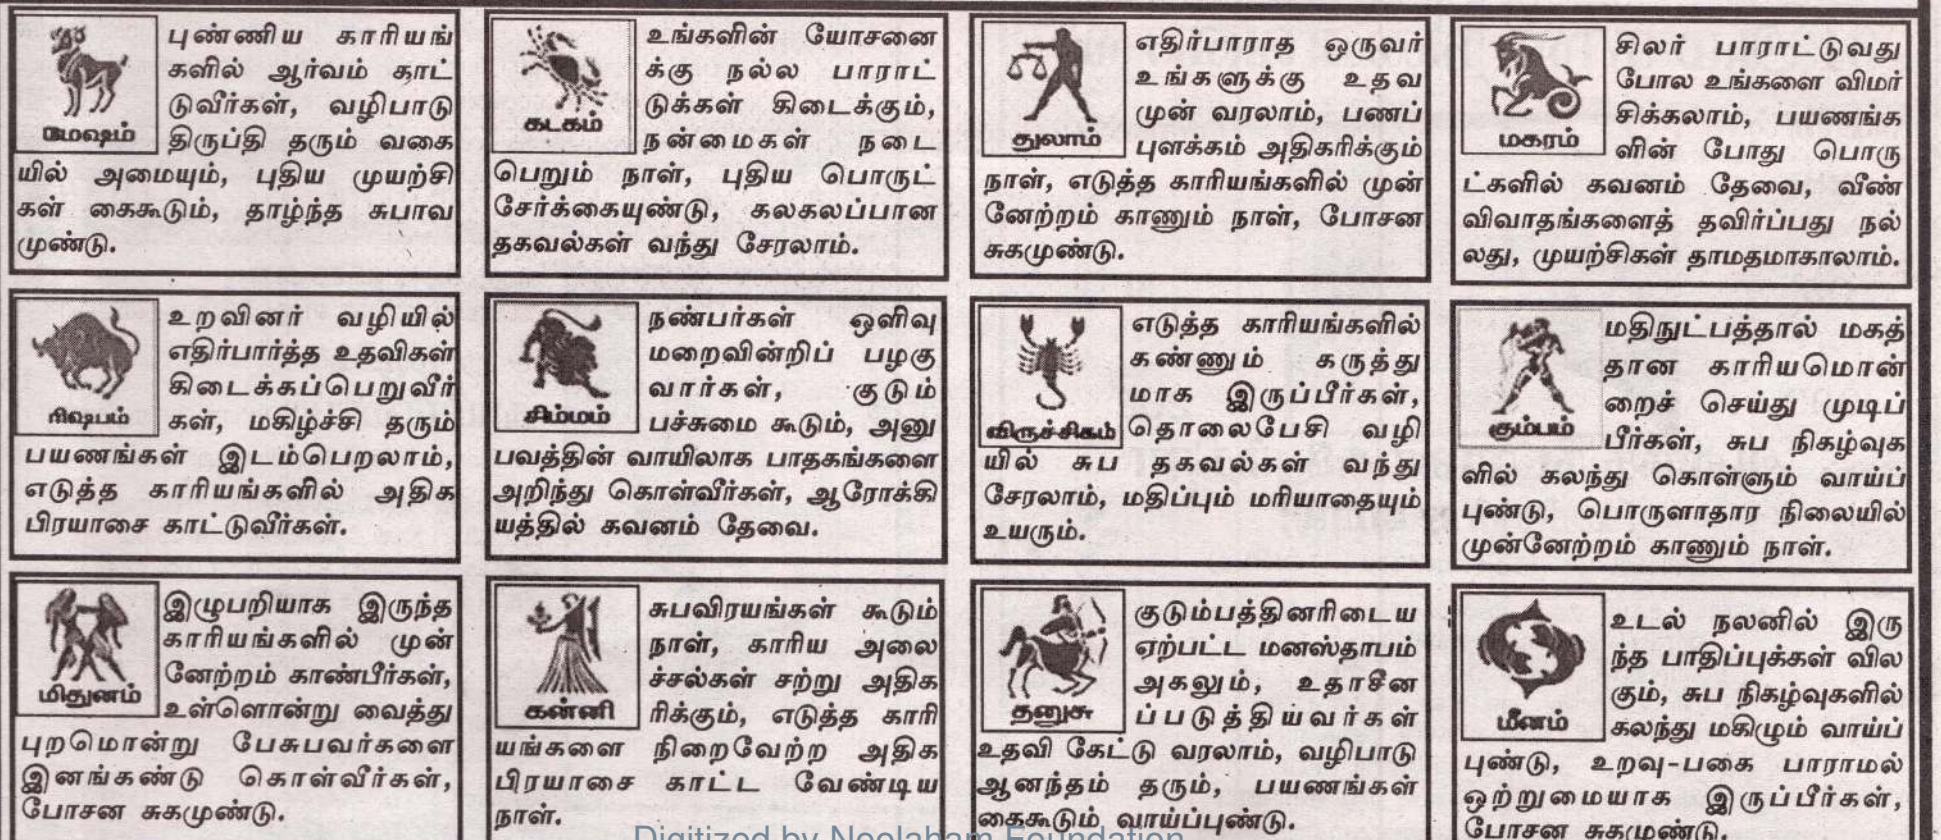 மேஷம்
புண்ணிய காரியங்
களில் ஆர்வம் காட்
டுவீர்கள், வழிபாடு
திருப்தி தரும் வகை
யில் அமையும், புதிய முயற்சி
கள் கைகூடும், தாழ்ந்த சுபாவ
முண்டு.
ரிஷபம்
உறவினர் வழியில்
எதிர்பார்த்த உதவிகள்
கிடைக்கப்பெறுவீர்
கள், மகிழ்ச்சி தரும்
பயணங்கள் இடம்பெறலாம்,
எடுத்த காரியங்களில் அதிக
பிரயாசை காட்டுவீர்கள்.
மிதுனம்
இழுபறியாக இருந்த
காரியங்களில் முன்
னேற்றம் காண்பீர்கள்,
உள்ளொன்று வைத்து
புறமொன்று பேசுபவர்களை
இனங்கண்டு கொள்வீர்கள்,
போசன சுகமுண்டு.
கடகம்
உங்களின் யோசனை
க்கு நல்ல பாராட்
டுக்கள் கிடைக்கும்,
நன்மைகள் நடை
பெறும் நாள், புதிய பொருட்
சேர்க்கையுண்டு, கலகலப்பான
தகவல்கள் வந்து சேரலாம்.
சிம்மம்
நண்பர்கள் ஒளிவு
மறைவின்றிப் பழகு
வார்கள், குடும்
பச்சுமை கூடும், அனு
பவத்தின் வாயிலாக பாதகங்களை
அறிந்து கொள்வீர்கள், ஆரோக்கி
யத்தில் கவனம் தேவை.
கன்னி
சுபவிரயங்கள் கூடும்
நாள், காரிய அலை
ச்சல்கள் சற்று அதிக
ரிக்கும், எடுத்த காரி
யங்களை நிறைவேற்ற அதிக
பிரயாசை காட்ட வேண்டிய
நாள்.
துலாம்
எதிர்பாராத ஒருவர்
உங்களுக்கு உதவ
முன் வரலாம், பணப்
புளக்கம் அதிகரிக்கும்
நாள், எடுத்த காரியங்களில் முன்
னேற்றம் காணும் நாள், போசன
சுகமுண்டு.
விருச்சிகம்
எடுத்த காரியங்களில்
கண்ணும் கருத்து
மாக இருப்பீர்கள்,
தொலைபேசி வழி
யில் சுப தகவல்கள் வந்து
சேரலாம், மதிப்பும் மரியாதையும்
உயரும்.
தனுசு
குடும்பத்தினரிடைய
ஏற்பட்ட மனஸ்தாபம்
அகலும், உதாசீன
ப்படுத்தியவர்கள்
உதவி கேட்டு வரலாம், வழிபாடு
ஆனந்தம் தரும், பயணங்கள்
கைகூடும் வாய்ப்புண்டு.
மகரம்
சிலர் பாராட்டுவது
போல உங்களை விமர்
சிக்கலாம், பயணங்க
ளின் போது பொரு
ட்களில் கவனம் தேவை, வீண்
விவாதங்களைத் தவிர்ப்பது நல்
லது, முயற்சிகள் தாமதமாகாலாம்.
கும்பம்
மதிநுட்பத்தால் மகத்
தான காரியமொன்
றைச் செய்து முடிப்
பீர்கள், சுப நிகழ்வுக
ளில் கலந்து கொள்ளும் வாய்ப்
புண்டு, பொருளாதார நிலையில்
முன்னேற்றம் காணும் நாள்.
மீனம்
உடல் நலனில் இரு
ந்த பாதிப்புக்கள் வில
கும், சுப நிகழ்வுகளில்
கலந்து மகிழும் வாய்ப்
புண்டு, உறவு-பகை பாராமல்
ஒற்றுமையாக இருப்பீர்கள்,
போசன சுகமுண்டு.
Digitized by Noolaham Foundation